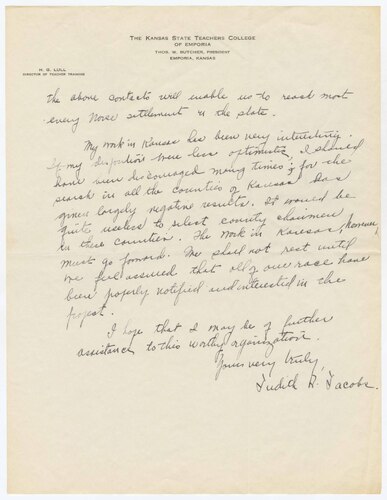 THE KANSAS STATE TEACHERS COLLEGE
OF EMPORIA
THOS. W. BUTCHER, PRESIDENT
EMPORIA, KANSAS
H. G. LULL
DIRECTOR OF TEACHER TRAINING
the above contacts will enable us to reach most
every Norse settlement in the state.
My work in Kansas has been very interesting.
If my disposition were less optimistic, I should
have been discouraged many times; for the
search in all the counties of Kansas has
given largely negative results. It would be
quite useless to select county chairmen
in these counties. The work in Kansas, however,
must go forward. We shall not rest until
we feel assured that all of our race have
been properly notified and interested in the
project.
I hope that I may be of further
assistance to this worthy organization.
Yours very truly,
Judith R. Jacobs.